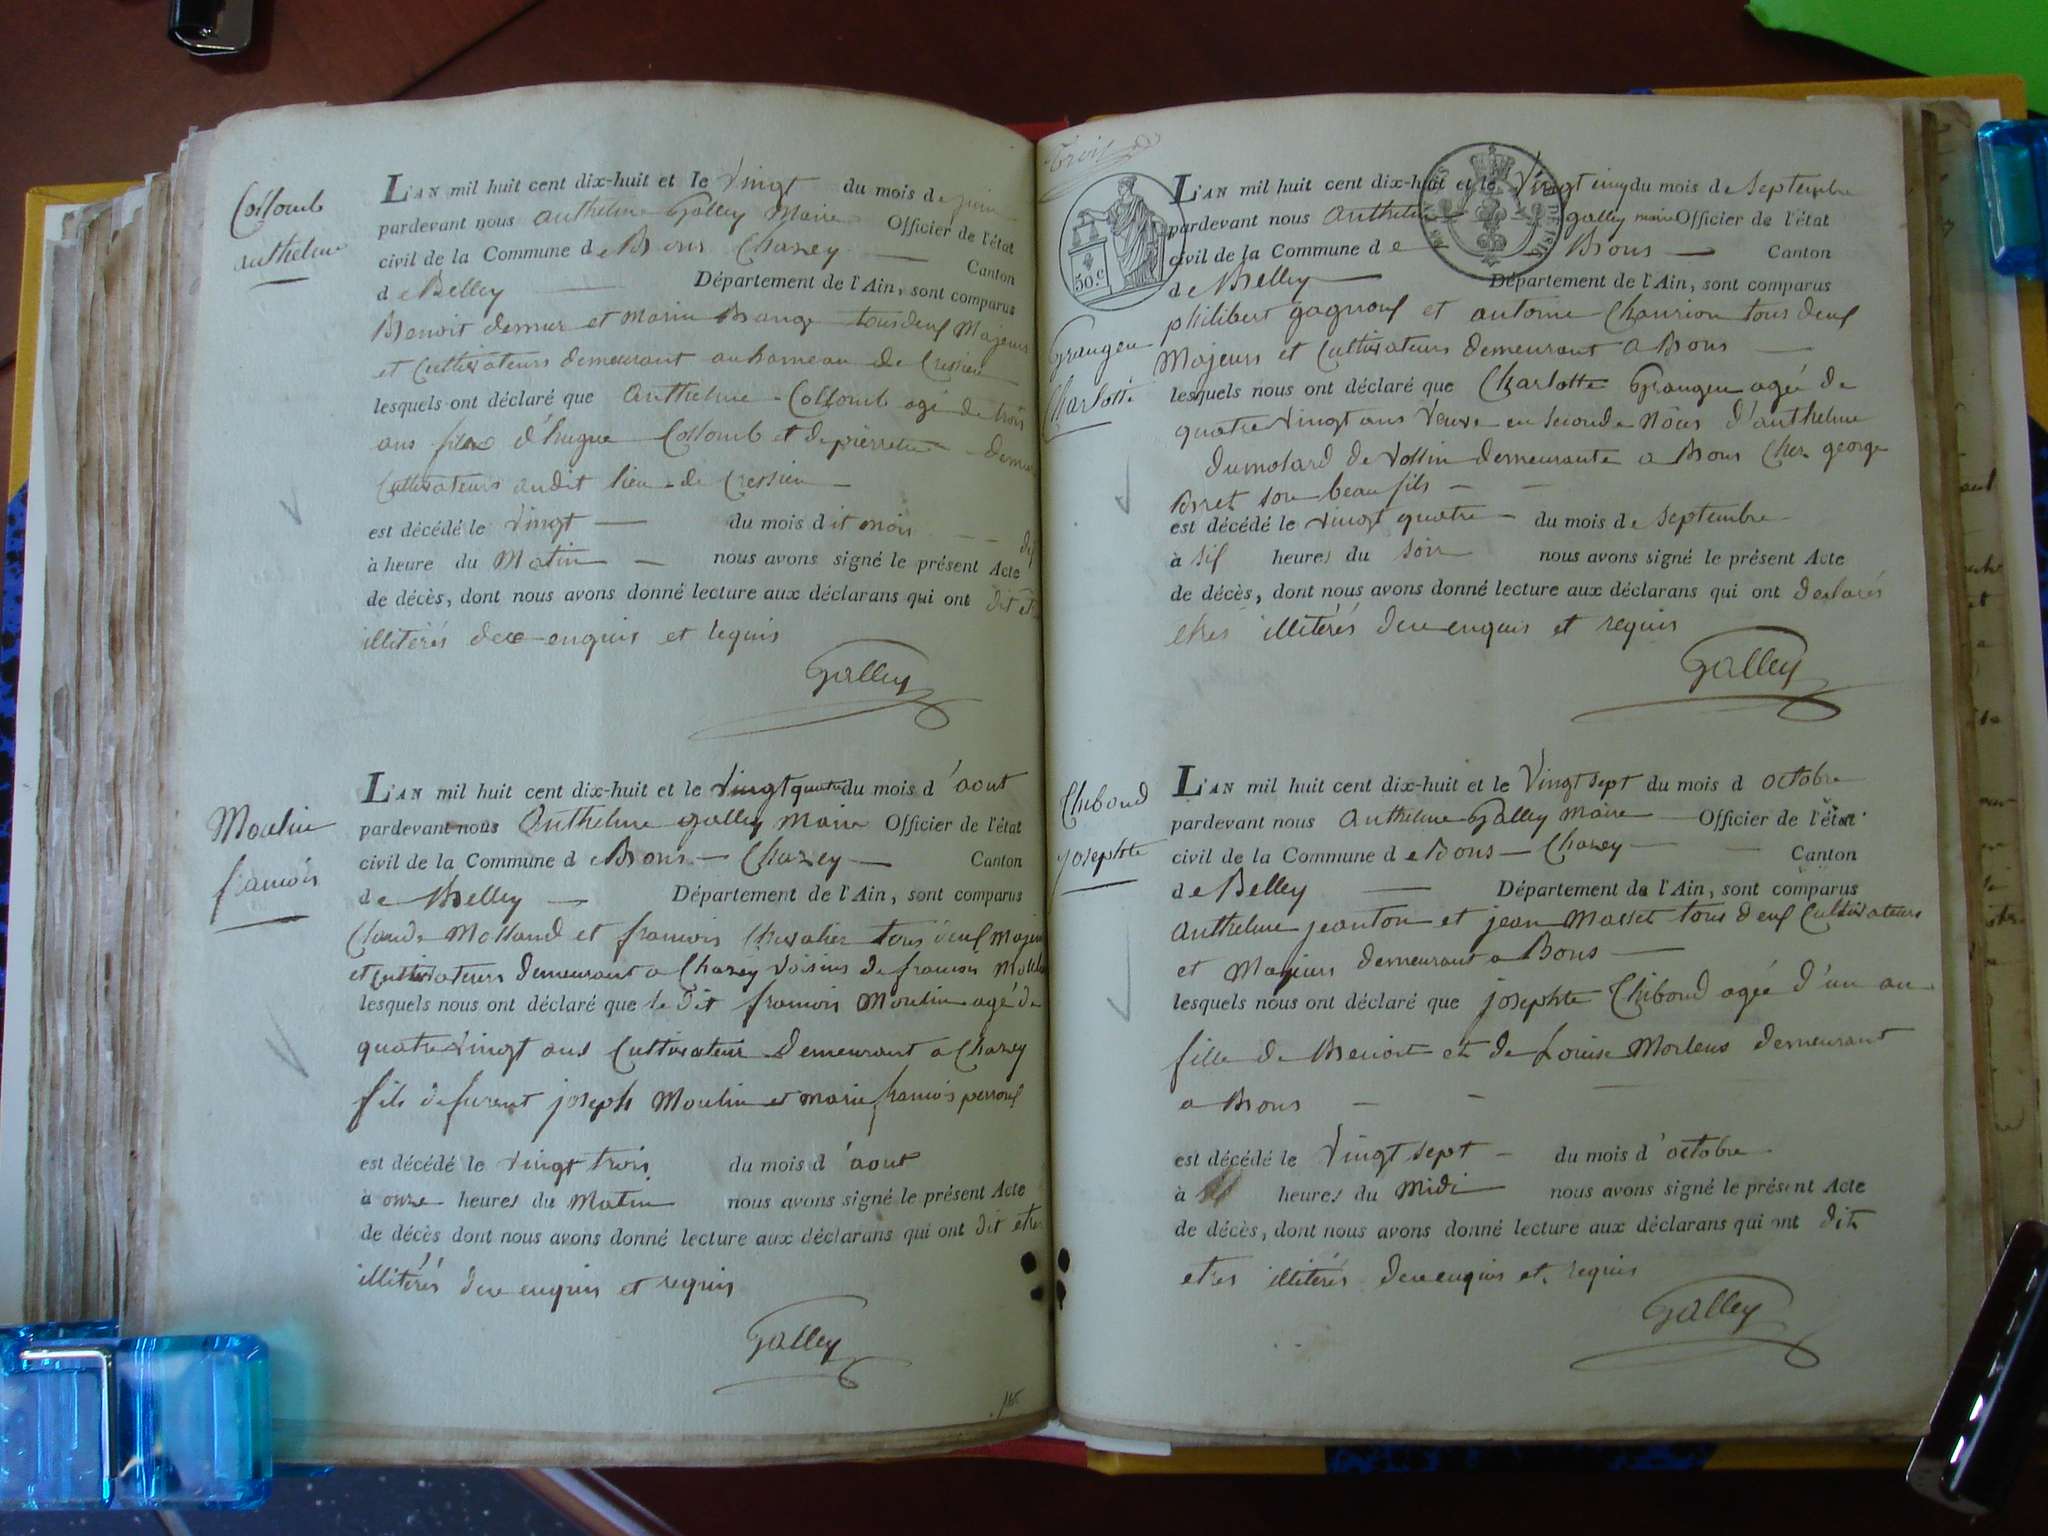 Collomb
anthelme
L'AN mil huit cent dix-huit et le Vingt du mois de juin
pardevant nous anthelme Galley Maire Officier de l'état
civil de la Commune de Bons Chazey Canton
de Belley Département de l'Ain, sont comparus
Benoit demur et Marin Bange tous deux Majeurs
et Cultivateurs demeurant au hameau de Cressieu
lesquels ont déclaré que anthelme Collomb agé de trois
ans fils d'hugue Collomb et de pierrette demur
Cultivateurs au dit lieu de Cressieu
est décédé le vingt du mois dit mois
à heure du Matin nous avons signé le présent Acte
de décès, dont nous avons donné lecture aux déclarans qui ont dit et
illitérés de ce enquis et requis
Galley
Moulin
francois
L'AN mil huit cent dix-huit et le Vingt quatre du mois d'aout
pardevant nous Anthelme galley Maire Officier de l'état
civil de la Commune de Bons - Chazey - Canton
de Belley Département de l'Ain, sont comparus
Claude Molland et francois Chevalier tous deux Majeurs
et cultivateurs demeurant a Chazey voisins de francois Moulin
lesquels nous ont déclaré que le dit francois Moulin agé de
quatre vingt ans Cultivateur demeurant a Chazey
fils de furent joseph Moulin et marie francois perroux
est décédé le vingt trois du mois d'aout
à onze heures du Matin nous avons signé le présent Acte
de décès dont nous avons donné lecture aux déclarans qui ont dit etres
illitérés de ce enquis et requis
Galley
Trois
50.c
Grangeu
Charlotte
L'AN mil huit cent dix-huit et le Vingt cinq du mois de septembre
pardevant nous Anthelme galley maire Officier de l'état
civil de la Commune de Bons Canton
de Belley Département de l'Ain, sont comparus
philibert gagnoux et antoine Chanrion tous deux
Majeurs et Cultivateurs demeurant a Bons
lesquels nous ont déclaré que Charlotte Grangeu agée de
quatre vingt ans Veuve en seconde Nôces d'anthelme
dumolard de Vollin demeurante a Bons Chez george
Brret son beau fils
est décédé le vingt quatre du mois de septembre
à six heures du soir nous avons signé le présent Acte
de décès, dont nous avons donné lecture aux déclarans qui ont declarés
etres illitérés de ce enquis et requis
Galley
Chiboud
josephte
L'AN mil huit cent dix-huit et le Vingt sept du mois d octobre
pardevant nous Anthelme Galley maire Officier de l'état
civil de la Commune de Bons - Chazey Canton
de Belley Département de l'Ain, sont comparus
Anthelme jeanton et jean Masset tous deux Cultivateurs
et Majeurs demeurant a Bons
lesquels nous ont déclaré que josephte Chiboud agée d'un an
fille de Benoit et de Louise Morleus demeurant
a Bons
est décédé le Vingt sept du mois d'octobre
à heures du midi nous avons signé le présent Acte
de décès, dont nous avons donné lecture aux déclarans qui ont dit
etres illitérés de ce enquis et requis
Galley